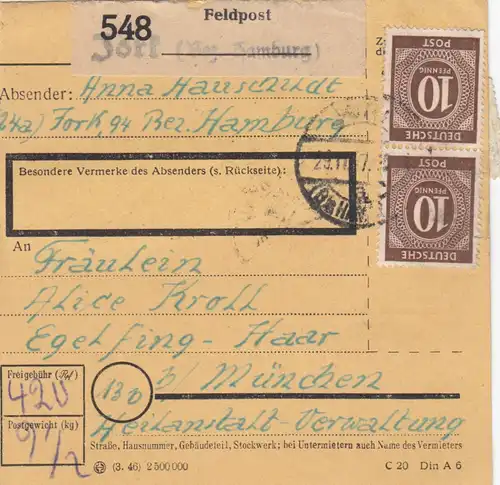 Feldpost
548
Jork (Bez. Hamburg)
Absender: Anna Hauschildt
(24a) Jork, 94 Bez. Hamburg
Besondere Vermerke des Absenders (s. Rückseite):
10
PFENNIG
DEUTSCHE
POST
10
PFENNIG
DEUTSCHE
POST
An
Fräulein
Alice Kroll
Egelfing-Haar
13b b/ München
Heilanstalt-Verwaltung
Freigebühr (Rpf)
420
Postgewicht (kg)
9 1/2
Straße, Hausnummer, Gebäudeteil, Stockwerk; bei Untermietern auch Name des Vermieters
(3. 46) 2 500 000
C 20 Din A 6